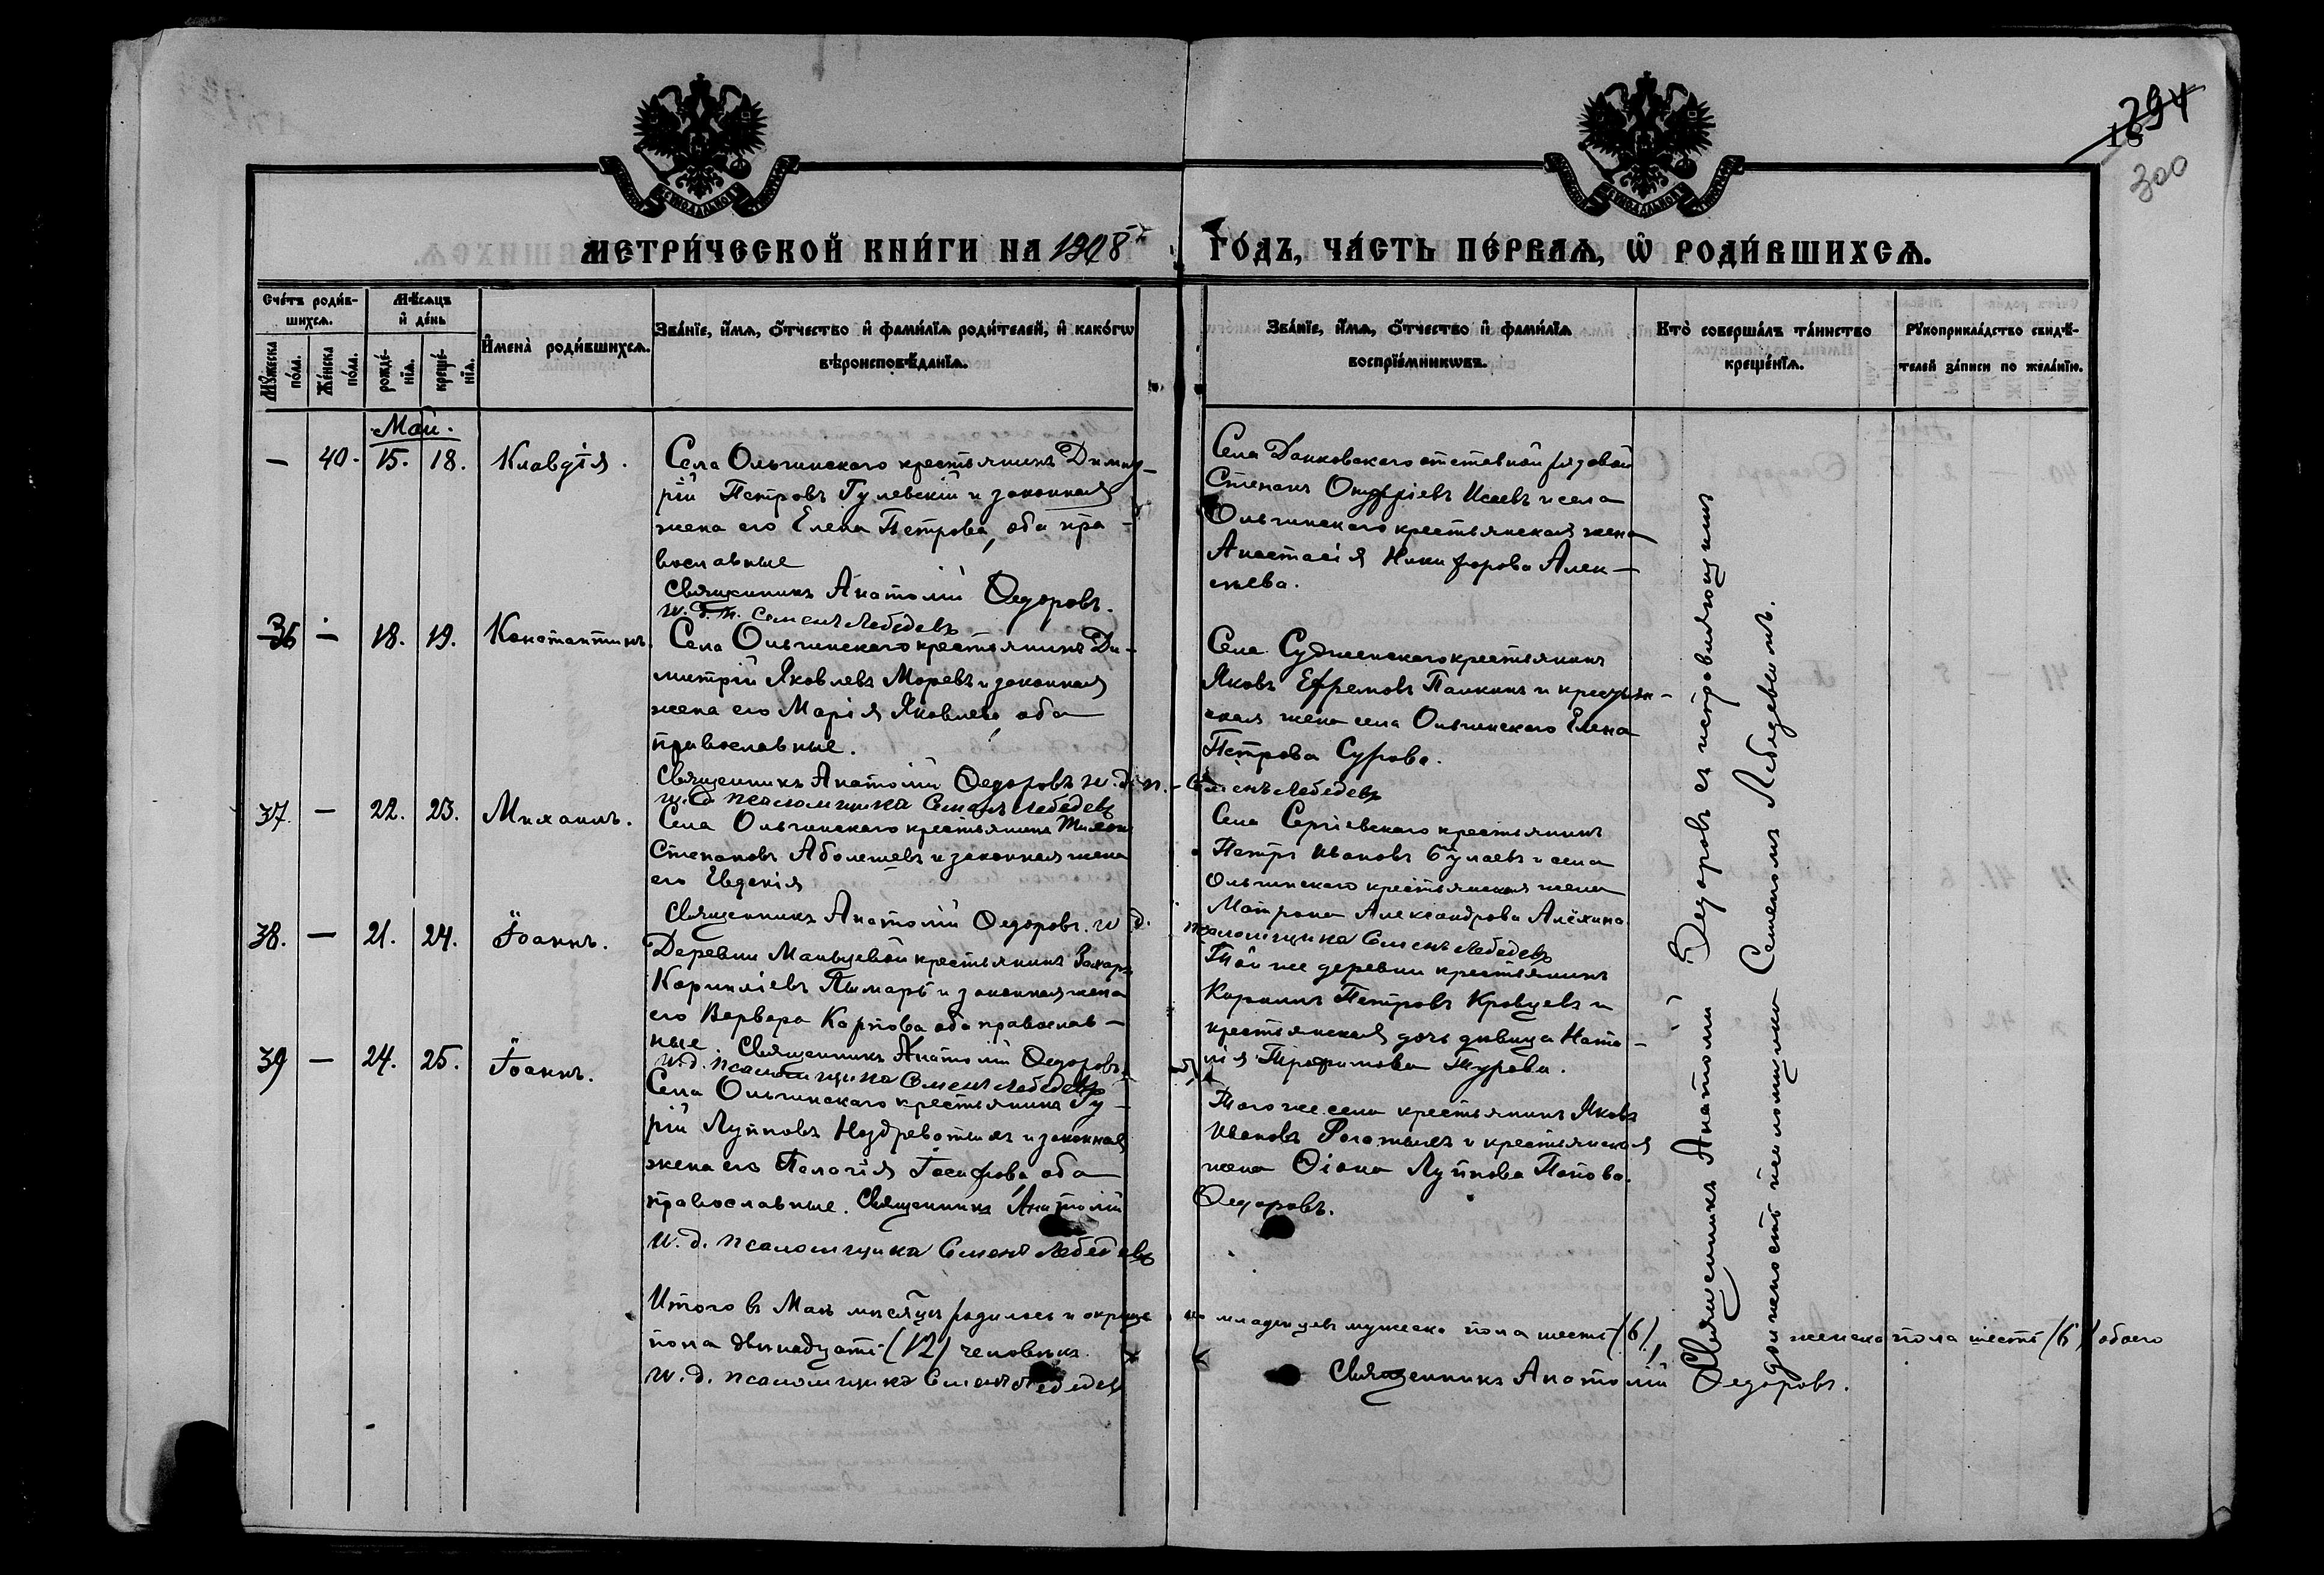 294
18
300
МЕТРИ́ЧЕСКОЙ КНИ́ГИ НА 1908 ГО́ДЪ, ЧА́СТЬ ПЕ́РВАѦ, Ѡ҆ РОДИ́ВШИХСѦ.
Сче́тъ роди́в-
шихсѧ.
Мѣ́сѧцъ
и҆ де́нь
Мꙋ́жеска
по́ла.
Же́нска
по́ла.
рожде́-
нїѧ.
креще́-
нїѧ.
И҆мена̀ роди́вшихсѧ.
Зва́нїе, и҆́мѧ, ѻ҆́тчество и҆ фами́лїѧ роди́телей, и҆ како́гѡ
вѣроисповѣ́данїѧ.
Зва́нїе, и҆́мѧ, ѻ҆́тчество и҆ фами́лїѧ
воспрїе́мникѡвъ.
Кто̀ соверша́лъ та́инство
креще́нїѧ.
Рꙋкоприкла́дство свидѣ́-
телей за́писи по жела́нїю.
Май.
— 40. 15. 18. Клавдія.
Села Ольгинскаго крестьянинъ Димит-
рій Петровъ Гулевскій и законная
жена его Елена Петрова, оба пра-
вославные
Священникъ Анатолій Ѳедоровъ.
и. д. п. Семенъ Лебедевъ
Села Донковскаго отставной рядовой
Степанъ Онуфріевъ Исаевъ и села
Ольгинскаго крестьянская жена
Анастасія Никифорова Алек-
сѣева.
36 — 18. 19. Константинъ.
Села Ольгинскаго крестьянинъ Ди-
митрій Яковлевъ Моревъ и законная
жена его Марія Яковлева, оба
православные.
Священникъ Анатолій Ѳедоровъ и. д. п. Семенъ Лебедевъ
и. д. псаломщика Семенъ Лебедевъ
Села Сужденскаго крестьянинъ
Яковъ Ефремовъ Палкинъ и крестьян-
ская жена села Ольгинскаго Елена
Петрова Сурова.
37. — 22. 23. Михаилъ.
Села Ольгинскаго крестьянинъ
Степановъ и законная жена
его Евдокія
Священникъ Анатолій Ѳедоровъ. и. д. псаломщика Семенъ Лебедевъ
Села Сергіевскаго крестьянинъ
Петръ Ивановъ Булаевъ и села
Ольгинскаго крестьянская жена
Матрона Александрова Алёхина.
38. — 21. 24. Іоаннъ.
Деревни Мальцевой крестьянинъ Захаръ
Корниліевъ и законная жена
его Варвара Карпова оба православ-
ные. Священникъ Анатолій Ѳедоровъ.
и. д. псаломщика Семенъ Лебедевъ
Той же деревни крестьянинъ
Петровъ Кравцевъ и
крестьянская дочь дѣвица Ната-
лія Трофимова Турова.
39 — 24. 25. Іоаннъ.
Села Ольгинскаго крестьянинъ Гу-
рій Лупповъ Ноздреватыхъ и законная
жена его Пелагія Іосифова, оба
православные. Священникъ Анатолій Ѳедоровъ.
и. д. псаломщика Семенъ Лебедевъ
Того же села крестьянинъ Яковъ
Ивановъ Рогатыхъ и крестьянская
жена Луппова Попова.
Священникъ Анатолій Ѳедоровъ съ исправляющимъ
должность псаломщика Семеномъ Лебедевымъ.
Итого въ Маѣ мѣсяцѣ родилось и окреще но младенцевъ мужеска пола шесть (6), женска пола шесть (6) обоего
пола двѣнадцать (12) человѣкъ.
Священникъ Анатолій Ѳедоровъ.
и. д. псаломщика Семенъ Лебедевъ